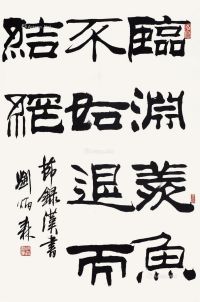 臨淵羨魚
不如退而
結網
節録漢書
劉炳森